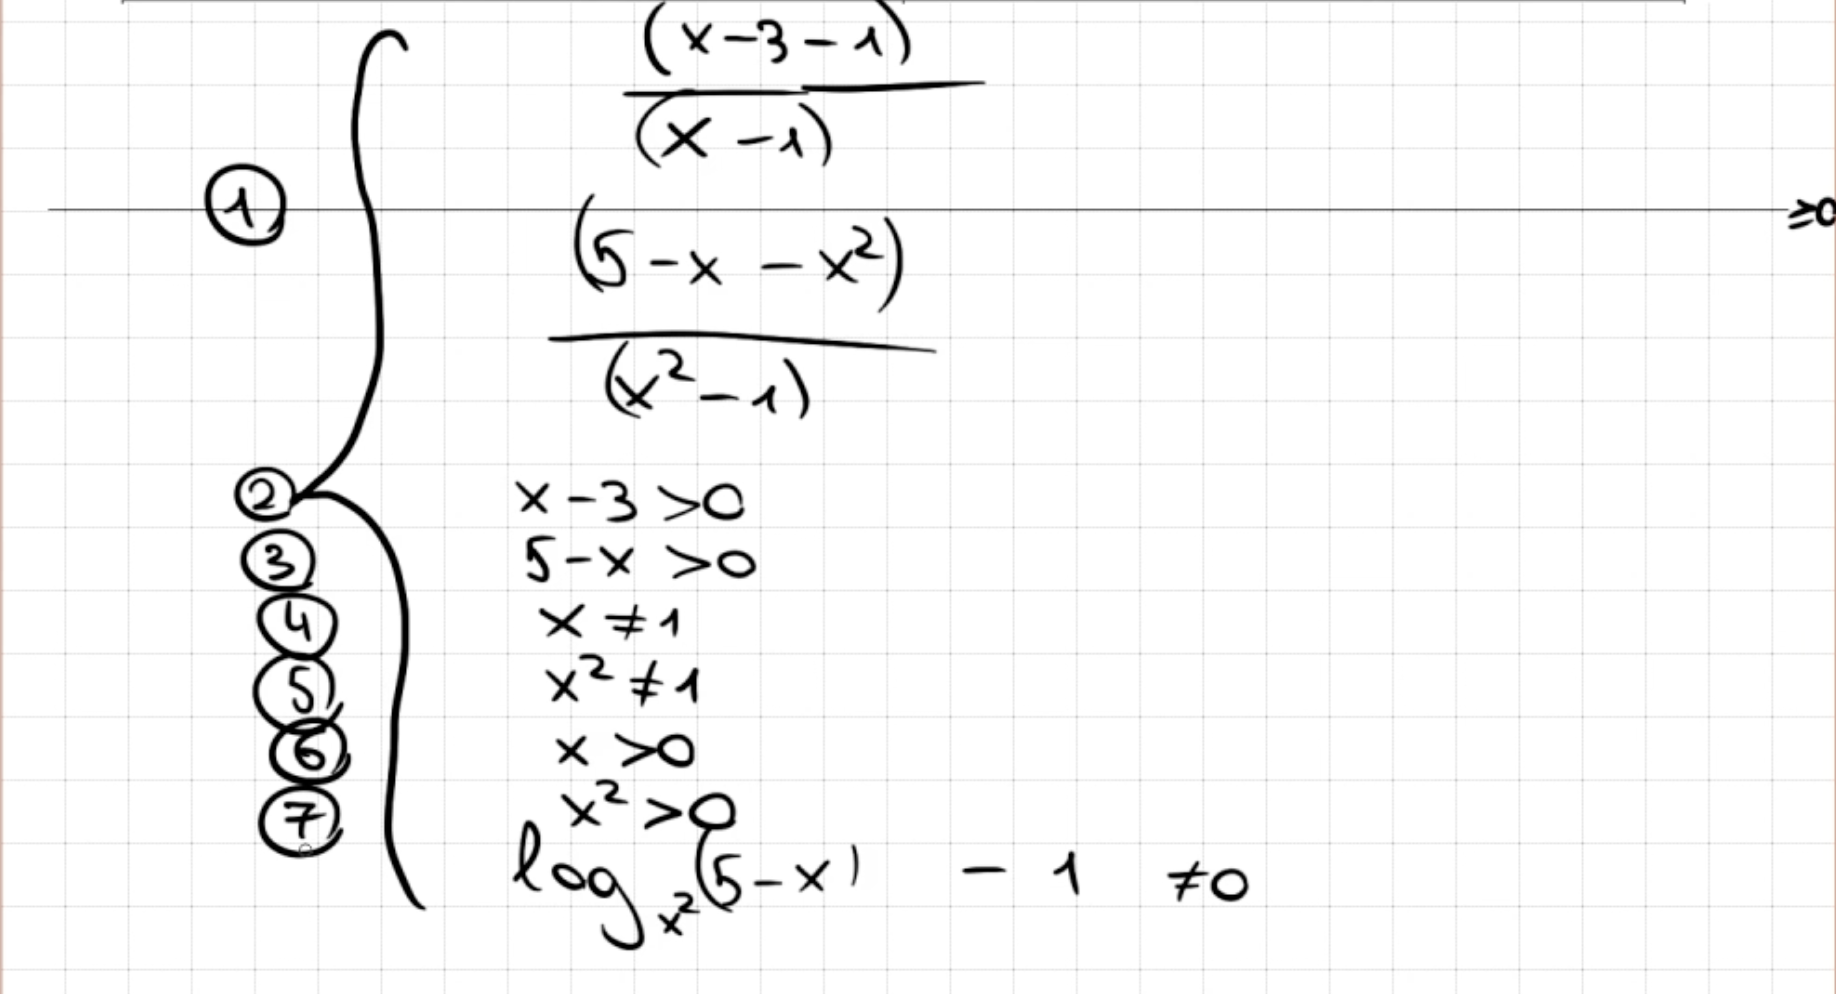 (x-3-1)
(x-1)
① ≥0
(5-x-x²)
(x²-1)
② x-3>0
③ 5-x>0
④ x≠1
⑤ x²≠1
⑥ x>0
⑦ x²>0
log_{x²}(5-x) - 1 ≠0